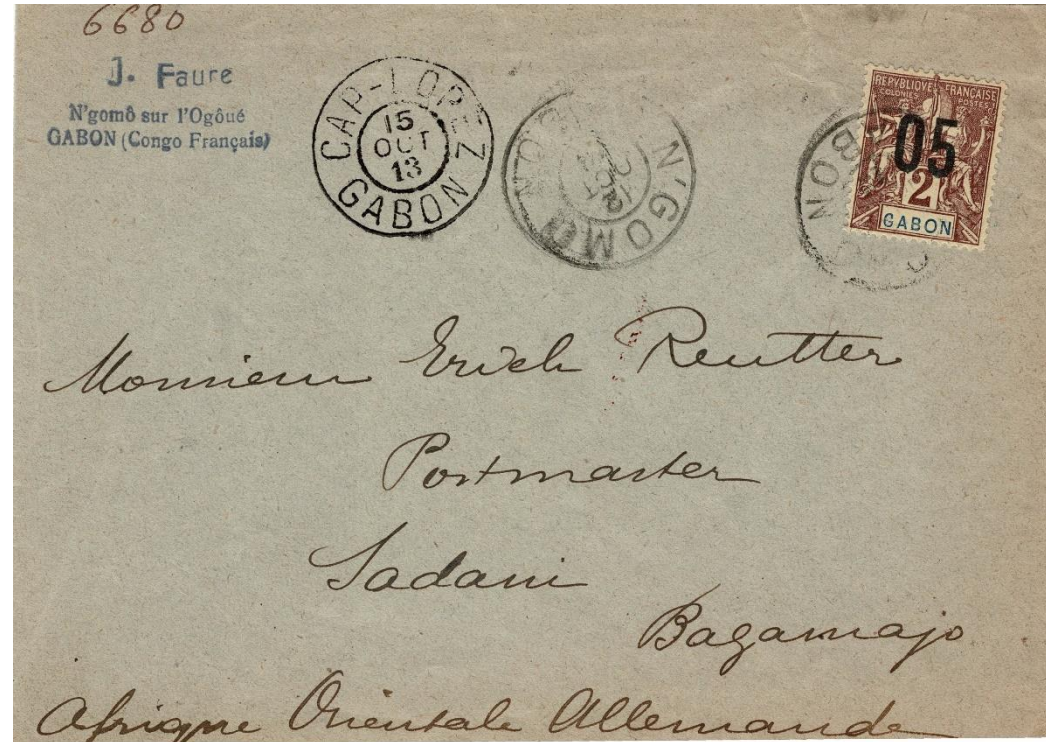 6680
J. Faure
N'gomô sur l'Ogôué
GABON (Congo Français)
CAP-LOPEZ
15
OCT
13
GABON
N'GOMO
REPVBLIQVE FRANÇAISE
COLONIES POSTES
05
2
GABON
Monsieur Erich Reutter
Postmaster
Sadani
Bagamajo
Afrique Orientale Allemande